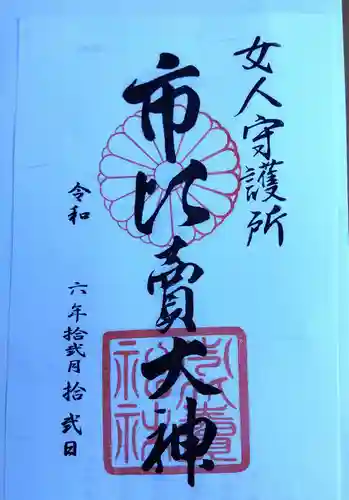 女人守護所
市比賣大神
令和六年拾弐月拾弐日
市比賣神社